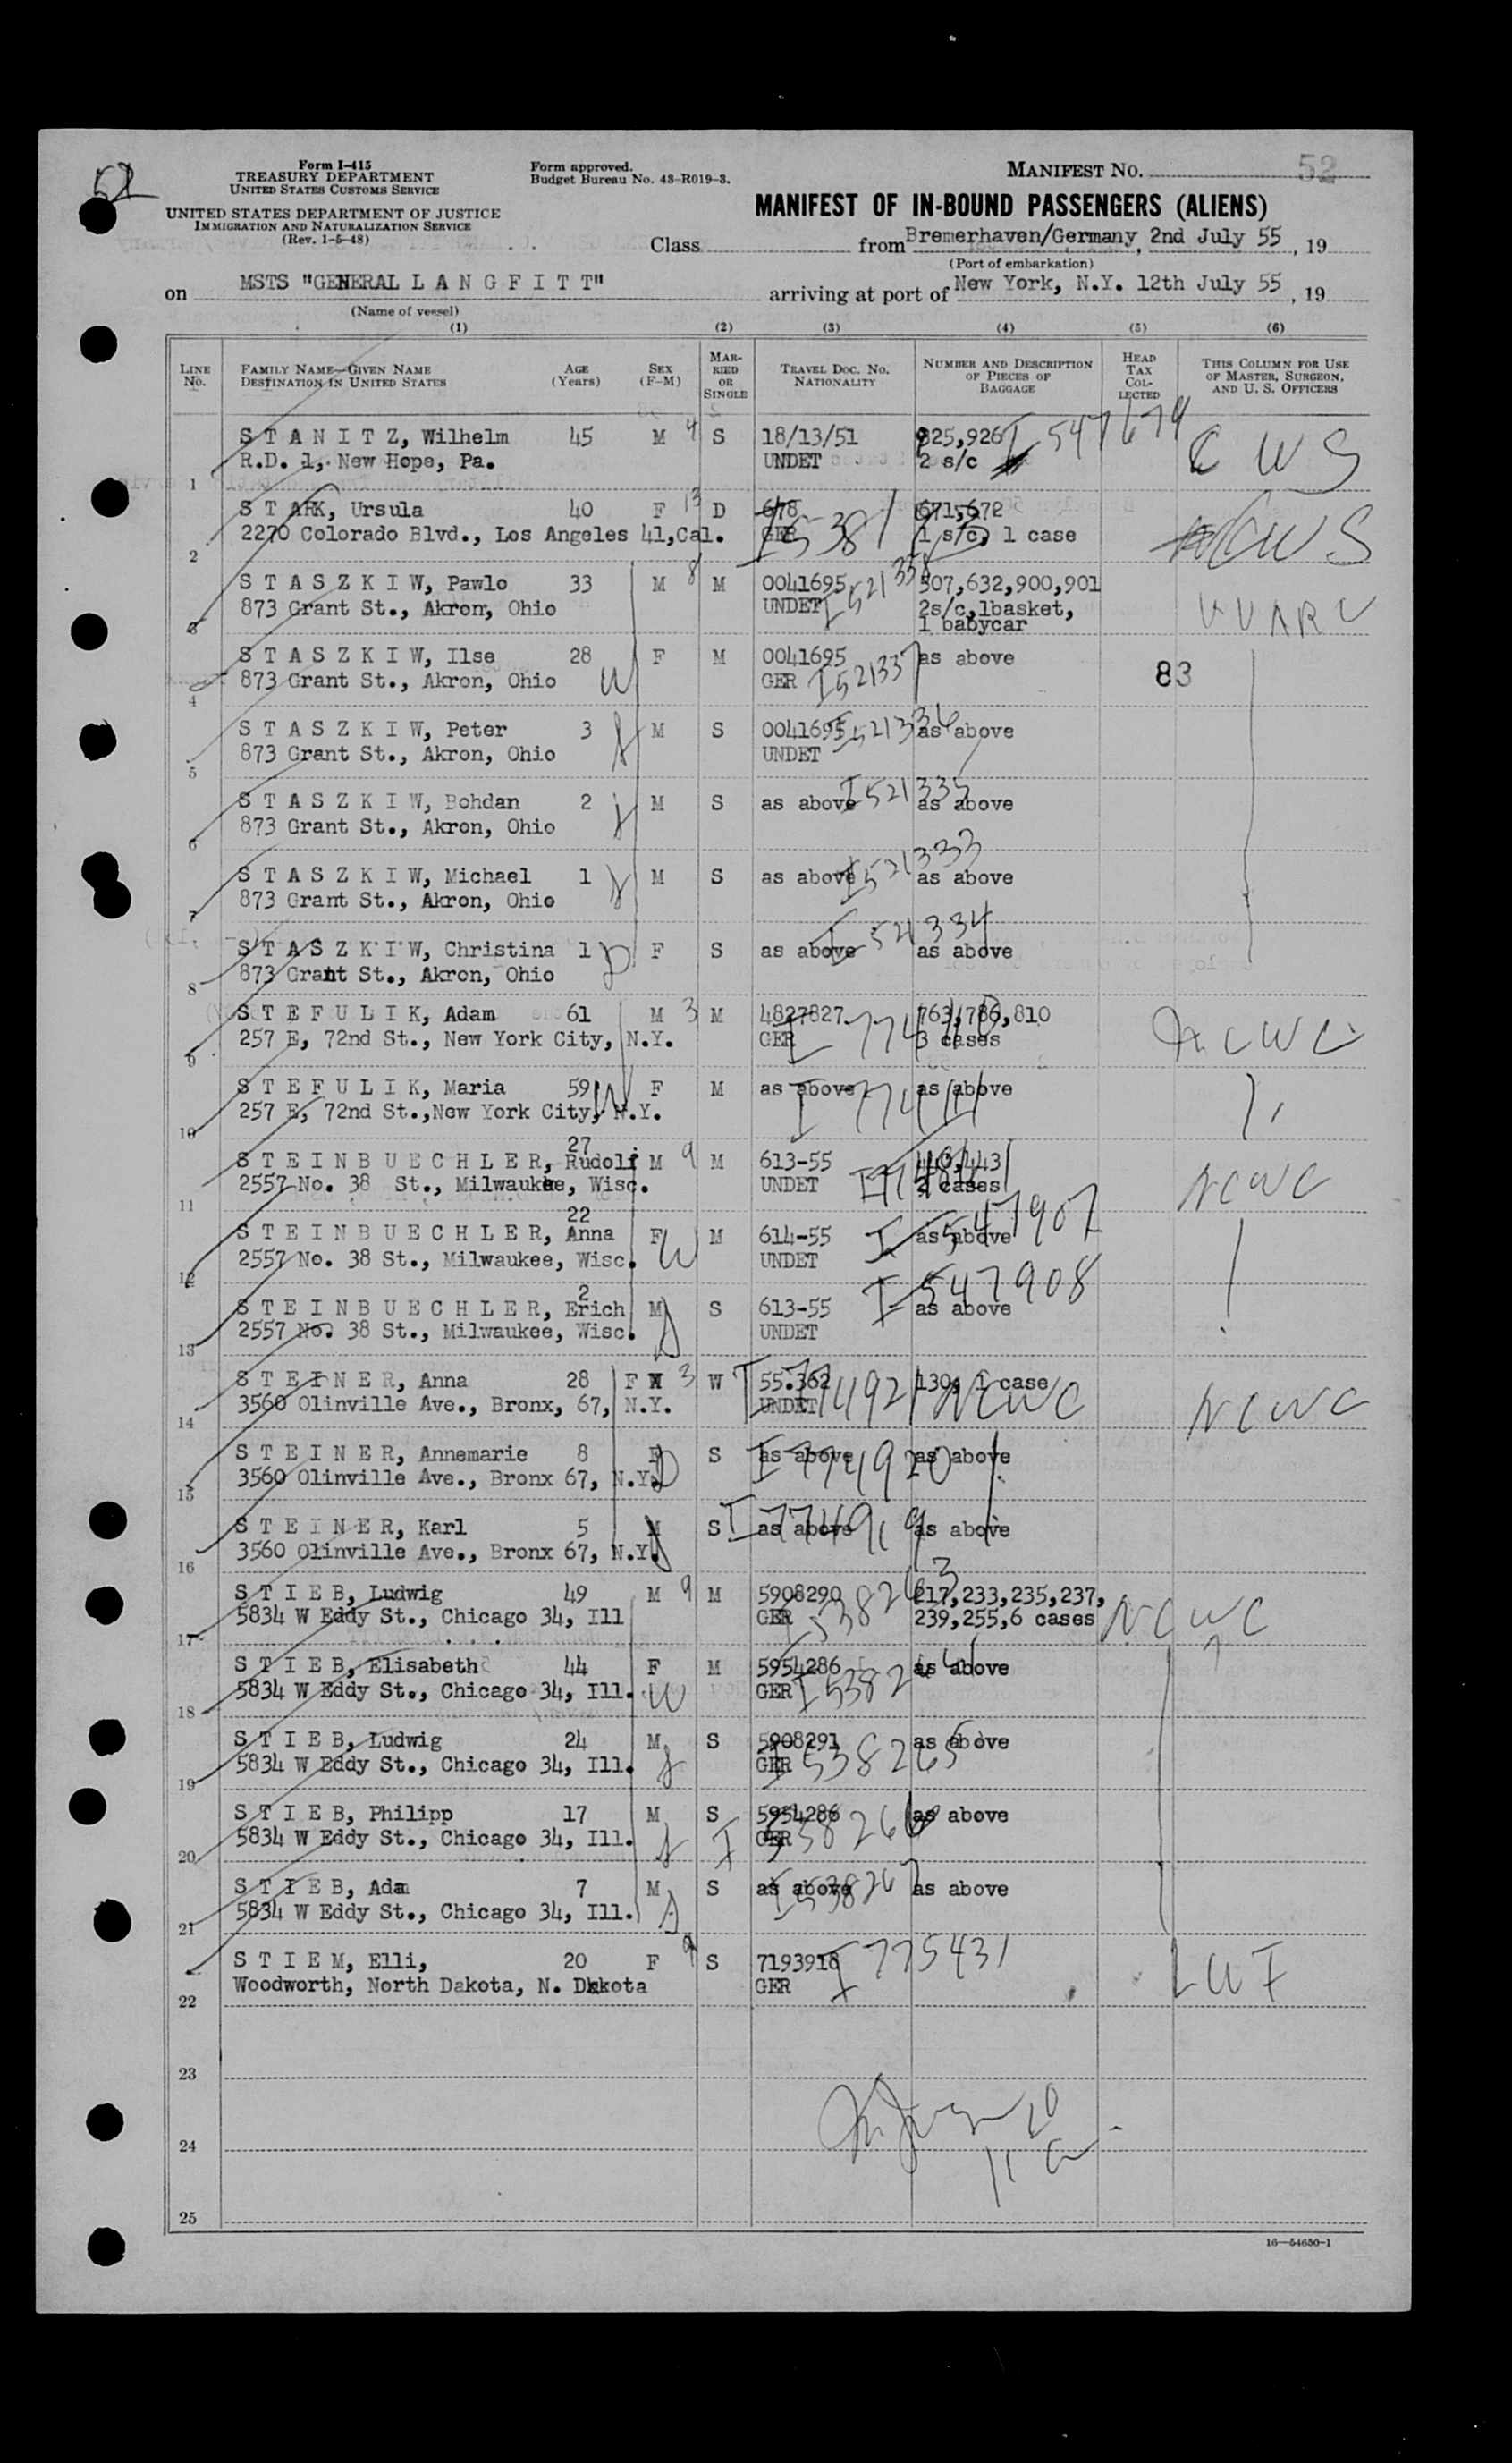 52
Form I-415
TREASURY DEPARTMENT
UNITED STATES CUSTOMS SERVICE
UNITED STATES DEPARTMENT OF JUSTICE
IMMIGRATION AND NATURALIZATION SERVICE
(Rev. 1-5-48)
Form approved.
Budget Bureau No. 43-R019-3.
MANIFEST NO. 52
MANIFEST OF IN-BOUND PASSENGERS (ALIENS)
Class from Bremerhaven/Germany, 2nd July 55, 19
(Port of embarkation)
on MSTS "GENERAL L A N G F I T T" arriving at port of New York, N.Y. 12th July 55, 19
(Name of vessel)
(1) (2) (3) (4) (5) (6)
LINE NO.
FAMILY NAME—GIVEN NAME
DESTINATION IN UNITED STATES
AGE (Years)
SEX (F-M)
MARRIED OR SINGLE
TRAVEL DOC. NO. NATIONALITY
NUMBER AND DESCRIPTION OF PIECES OF BAGGAGE
HEAD TAX COLLECTED
THIS COLUMN FOR USE OF MASTER, SURGEON, AND U. S. OFFICERS
S T A N I T Z, Wilhelm 45 M 4 S 18/13/51 925,926 I 547679 C W S
R.D. 1, New Hope, Pa. UNDET 2 s/c
1
S T ARK, Ursula 40 F 13 D 678 671,672
2270 Colorado Blvd., Los Angeles 41,Cal. GER 1 s/c, 1 case CWS
2
S T A S Z K I W, Pawlo 33 M 8 M 0041695 I 521338 507,632,900,901
873 Grant St., Akron, Ohio UNDET 2s/c,1basket,
1 babycar
3
S T A S Z K I W, Ilse 28 F M 0041695 as above
873 Grant St., Akron, Ohio W GER I 521337 83
4
S T A S Z K I W, Peter 3 M S 0041695 I 521336 as above
873 Grant St., Akron, Ohio UNDET
5
S T A S Z K I W, Bohdan 2 M S as above I 521335 as above
873 Grant St., Akron, Ohio
6
S T A S Z K I W, Michael 1 M S as above I 521333 as above
873 Grant St., Akron, Ohio
7
S T A S Z K I W, Christina 1 D F S as above I 521334 as above
873 Grant St., Akron, Ohio
8
S T E F U L I K, Adam 61 M 3 M 4827827 763,786,810
257 E, 72nd St., New York City, N.Y. GER 3 cases NCWC
9
S T E F U L I K, Maria 59 W F M as above as above
257 E, 72nd St.,New York City, N.Y.
10
27
S T E I N B U E C H L E R, Rudolf M 9 M 613-55
2557 No. 38 St., Milwaukee, Wisc. UNDET cases NCWC
11
22
S T E I N B U E C H L E R, Anna F W M 614-55 as above I 547907
2557 No. 38 St., Milwaukee, Wisc. UNDET
12
2
S T E I N B U E C H L E R, Erich M S 613-55 as above I 547908
2557 No. 38 St., Milwaukee, Wisc. UNDET
13
S T E I N E R, Anna 28 F 3 W 55.362 130, 1 case
3560 Olinville Ave., Bronx, 67, N.Y. UNDET I 774921 NCWC NCWC
14
S T E I N E R, Annemarie 8 F S as above I 774920 as above
3560 Olinville Ave., Bronx 67, N.Y. D
15
S T E I N E R, Karl 5 M S as above I 774919 as above
3560 Olinville Ave., Bronx 67, N.Y.
16
S T I E B, Ludwig 49 M 9 M 5908290 217,233,235,237,
5834 W Eddy St., Chicago 34, Ill GER I 538263 239,255,6 cases NCWC
17
S T I E B, Elisabeth 44 F M 5954286 as above
5834 W Eddy St., Chicago 34, Ill. W GER
18
S T I E B, Ludwig 24 M S 5908291 as above
5834 W Eddy St., Chicago 34, Ill. GER I 538265
19
S T I E B, Philipp 17 M S 5954286 as above
5834 W Eddy St., Chicago 34, Ill. GER I 538266
20
S T I E B, Adam 7 M S as above I 538267 as above
5834 W Eddy St., Chicago 34, Ill.
21
S T I E M, Elli, 20 F 9 S 7193918 I 775431 LWF
Woodworth, North Dakota, N. Dakota GER
22
23
24
25
16—54650-1